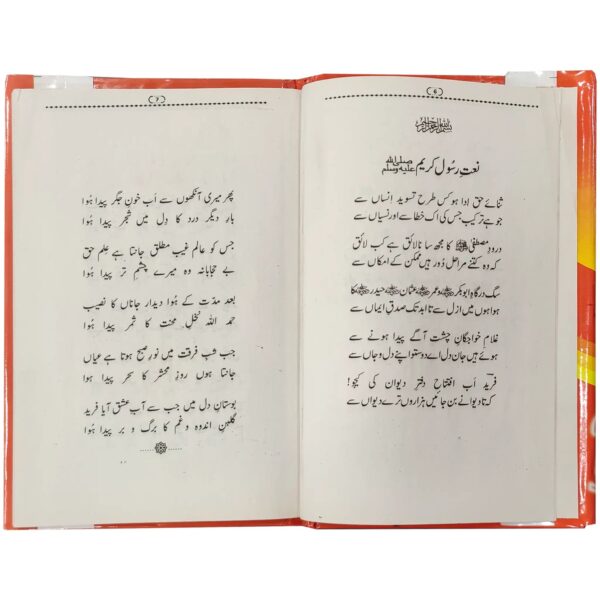 6
بسم اللہ الرحمن الرحیم
نعتِ رسُول کریم صلی اللہ علیہ وسلم
ثنائے حق ادا ہو کس طرح تسوید انساں سے
جو ہے ترکیب جس کی اک خطا سے اور نسیاں سے
درودِ مصطفیٰ ﷺ کا مجھ سا نالائق ہے کب لائق
کہ وہ کتنے مراحل دُور ہیں ممکن کے امکاں سے
سگ درگاہِ ابوبکرؓ و عمرؓ عثمانؓ و حیدرؓ کا
ہوا ہوں میں ازل سے تا ابد تک صدقِ ایماں سے
غلام خواجگانِ چشت آگے پیدا ہونے سے
ہوئے ہیں جان دل اے دوستو اپنے دل و جاں سے
فرید اَب افتتاحِ دفترِ دیوان کی کیجو!
کہ تا دیوانے بن جائیں ہزاروں ترے دیواں سے
7
پھر میری آنکھوں سے اُب خونِ جگر پیدا ہُوا
بار دیگر درد کا دل میں شجر پیدا ہُوا
جس کو عالم غیب مطلق جانتا ہے علمِ حق
بے حجابانہ وہ میرے چشمِ تر پیدا ہُوا
بعد مدت کے ہُوا دیدار جاناں کا نصیب
حمد اللہ نخلِ محنت کا ثمر پیدا ہُوا
جب شبِ فرقت میں نورِ صبح ہوتا ہے عیاں
جانتا ہوں روزِ محشر کا سحر پیدا ہوا
بوستانِ دل میں جب سے آب عشق آیا فرید
گلبنِ اندوہ و غم کا برگ و بر پیدا ہُوا